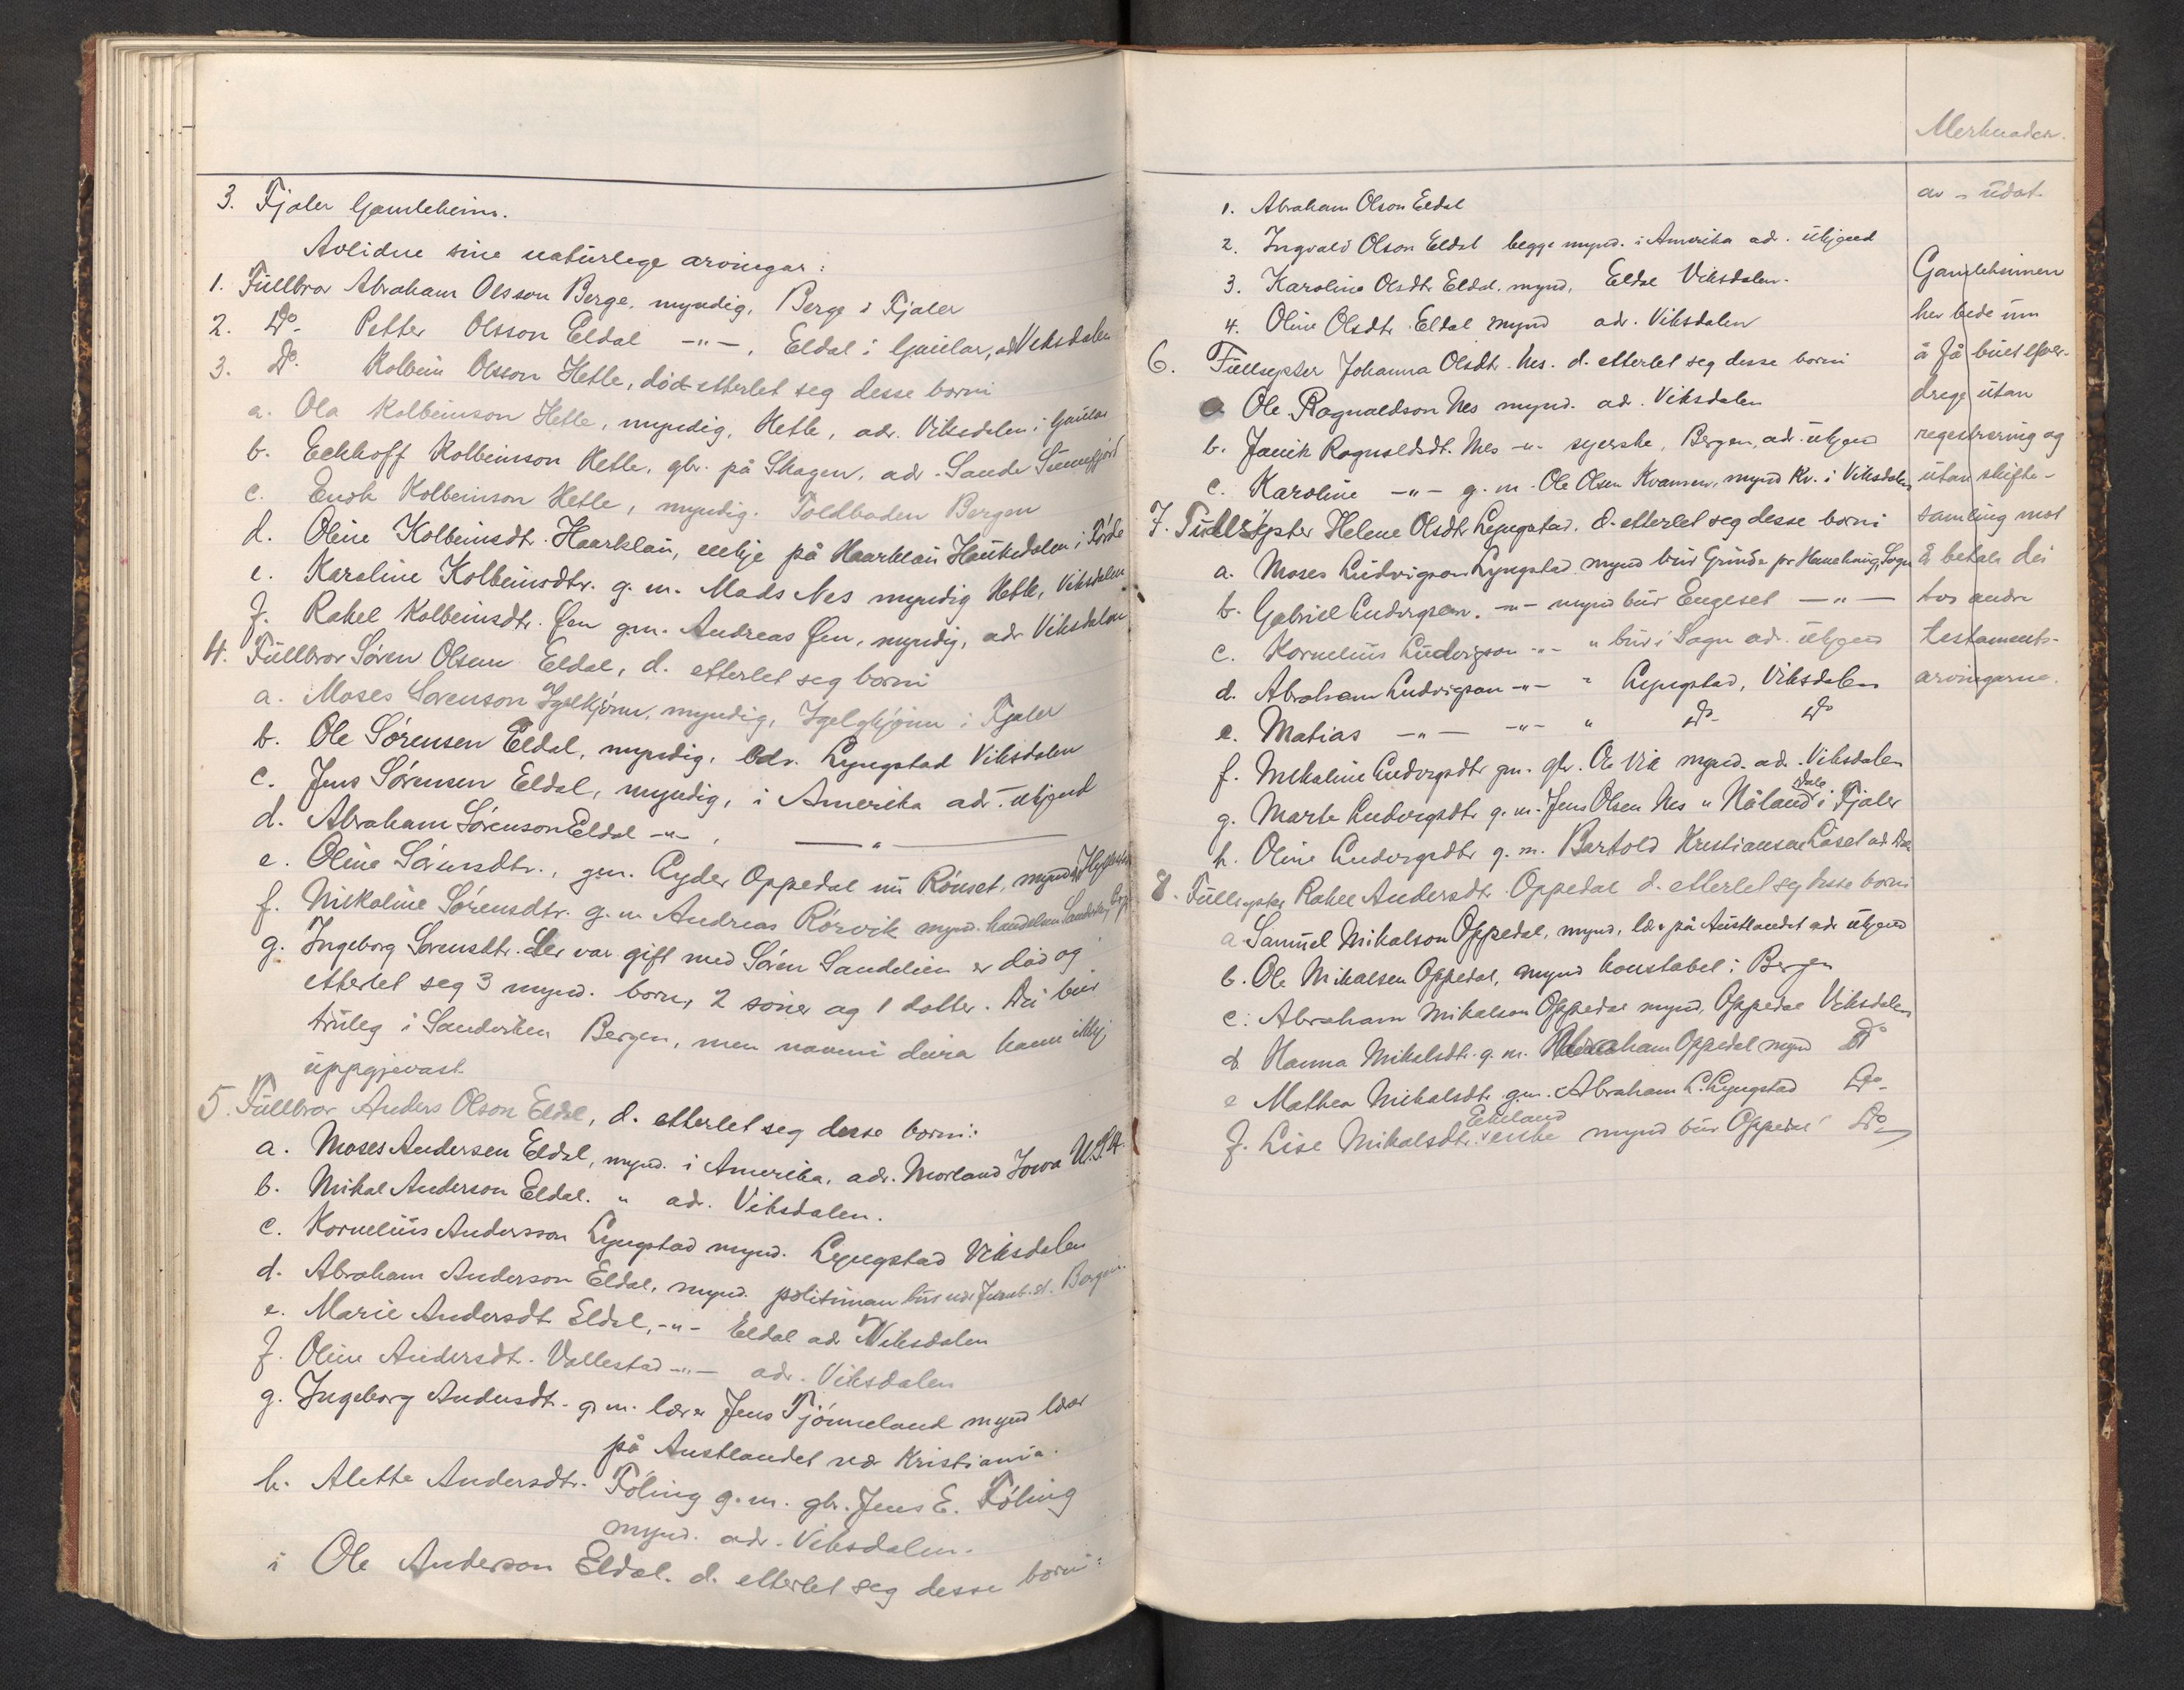 3. Fjaler Gamleheim.
Avlidne sine naturlege arvingar:
1. Fullbror Abraham Olsson Berge, myndig, Berge i Fjaler
2. Do. Petter Olsson Eldal -"-, Eldal i Gaular, ad. Viksdalen
3. Do. Kolbein Olsson Hetle, död etterlet seg desse borni
a. Ola Kolbeinson Hetle, myndig, Hetle, adr. Viksdalen i Gaular
b. Eckhoff Kolbeinson Hetle, gbr. på Skagen, adr. Sande Sunnfjord
c. Enok Kolbeinson Hetle, myndig. Toldboden Bergen
d. Oline Kolbeinsdtr. Haarklau, enkje på Haarklau Haukedalen i Førde
e. Karoline Kolbeinsdtr. g. m. Mads Nes myndig Hetle, Viksdalen
f. Rakel Kolbeinsdtr. Øen gm. Andreas Øen, myndig, adr Viksdalen
4. Fullbror Søren Olsen Eldal, d. etterlet seg borni
a. Moses Sørenson Igelkjønn, myndig, Igelkjønn i Fjaler
b. Ole Sørensen Eldal, myndig, adr. Lyngstad Viksdalen
c. Jens Sørensen Eldal, myndig, i Amerika adr. ukjend
d. Abraham Sørenson Eldal -"-, -"-
e. Oline Sørensdtr., gm. Ayder Oppedal nu Rønset, mynd. Hyllestad
f. Nikoline Sørensdtr. g. m Andreas Rørvik mynd. handelsm Sandviken Bergen
g. Ingeborg Sørensdtr. Ler var gift med Søren Sandelien er død og
etterlet seg 3 mynd. born, 2 søner og 1 dotter. Dei bur
truleg i Sandviken Bergen, men namni deira kann ikkj
uppgjevast.
5. Fullbror Anders Olson Eldal, d. etterlet seg desse borni:
a. Moses Andersen Eldal, mynd. i Amerika, adr. Morland Iowa U.S.A.
b. Mikal Anderson Eldal. " adr. Viksdalen.
c. Kornelius Andersson Lyngstad mynd. Lyngstad Viksdalen
d. Abraham Anderson Eldal, mynd. politiman bur ved Jernb.st. Bergen.
e. Marie Andersdt Eldal, -"- Eldal adr Viksdalen
f. Oline Andersdt. Vallestad -"- adr. Viksdalen
g. Ingeborg Andersdt. g. m. lærer Jens Tjønneland mynd lærer
på Austlandet ved Kristiania.
h. Alette Andersdtr. Føling g. m. gbr. Jens E. Føling
mynd. adr. Viksdalen.
i Ole Anderson Eldal. d. etterlet seg desse borni:
Merknader.
1. Abraham Olson Eldal
2. Ingvald Olson Eldal begge mynd. i Amerika adr. ukjend
3. Karoline Olsdtr Eldal, mynd, Eldal Viksdalen.
4. Oline Olsdtr. Eldal mynd adr. Viksdalen
6. Fullsyster Johanna Olsdtr. Nes. d. etterlet seg desse borni
a Ole Ragnaldson Nes mynd. adr. Viksdalen
b. Janik Ragnaldsdt. Nes -"- syerske, Bergen, adr. ukjend
c. Karoline -"- g. m. Ole Olsen Kvamen, mynd Kv. i Viksdalen
7. Fullsyster Helene Olsdtr Lyngstad. d. etterlet seg desse borni
a. Moses Ludvigson Lyngstad mynd bur Grinde pr Hauehaug, Sogn
b. Gabriel Ludvigson. -"- mynd bur Engeset -"-
c. Kornelius Ludvigson -"- " bur i Sogn adr. ukjend
d. Abraham Ludvigson -"- " Lyngstad, Viksdalen
e. Matias -"- -"- " Do Do
f. Mikaline Ludvigsdtr gm. gbr. Ole Vik mynd. adr. Viksdalen
g. Marte Ludvigsdtr g. m. Jens Olsen Nes " Nåland Dale i Fjaler
h. Oline Ludvigsdtr g. m. Bartold Kristiansen Låset ad. Do
8. Fullsyster Rakel Andersdtr. Oppedal d. etterlet seg desse borni
a Samuel Mikalson Oppedal, mynd, lær. på Austlandet adr ukjend
b. Ole Mikalsen Oppedal, mynd konstabel i Bergen
c. Abraham Mikalson Oppedal mynd, Oppedal Viksdalen
d Hanna Mikalsdtr. g. m. Abraham Oppedal mynd Do
e Mathea Mikalsdtr. g.m. Abraham L. Lyngstad Do.
f. Lise Mikalsdtr. Eikeland enke mynd bur Oppedal Do
av - udat.
Gamleheimen
hev bede um
å få buet yver-
drege utan
registrering og
utan skifte-
samling mot
å betale dei
tvo andre
testaments-
arvingarne.